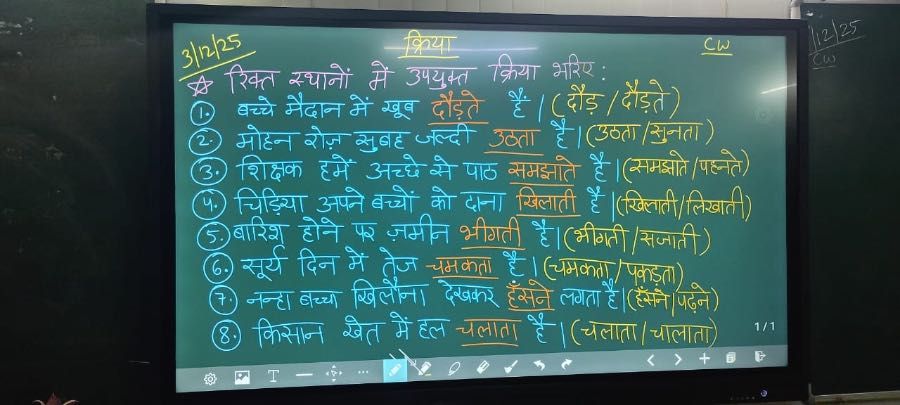 3/12/25
क्रिया
CW
☆ रिक्त स्थानों में उपयुक्त क्रिया भरिए:
1. बच्चे मैदान में खूब दौड़ते है। (दौड़ / दौड़ते)
2. मोहन रोज़ सुबह जल्दी उठता है। (उठता / सुनता)
3. शिक्षक हमें अच्छे से पाठ समझाते है। (समझाते / पहनते)
4. चिड़िया अपने बच्चों को दाना खिलाती है। (खिलाती / लिखाती)
5. बारिश होने पर ज़मीन भीगती है। (भीगती / सजाती)
6. सूर्य दिन में तेज चमकता है। (चमकता / पकड़ता)
7. नन्हा बच्चा खिलौना देखकर हँसने लगता है। (हँसने / पढ़ने)
8. किसान खेत में हल चलाता है। (चलाता / चालाता)
1/1
/12/25
CW